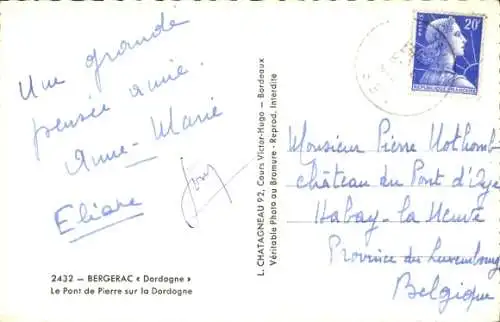 Une grande
pensée amie.
Anne-Marie
Eliane
2432 — BERGERAC « Dordogne »
Le Pont de Pierre sur la Dordogne
L. CHATAGNEAU 92, Cours Victor-Hugo — Bordeaux
Véritable Photo au Bromure - Reprod. Interdite
20F
POSTES
REPUBLIQUE FRANÇAISE
Monsieur Pierre Nothomb
château du Pont d'Oye
Habay-la Neuve
Province du Luxembourg
Belgique